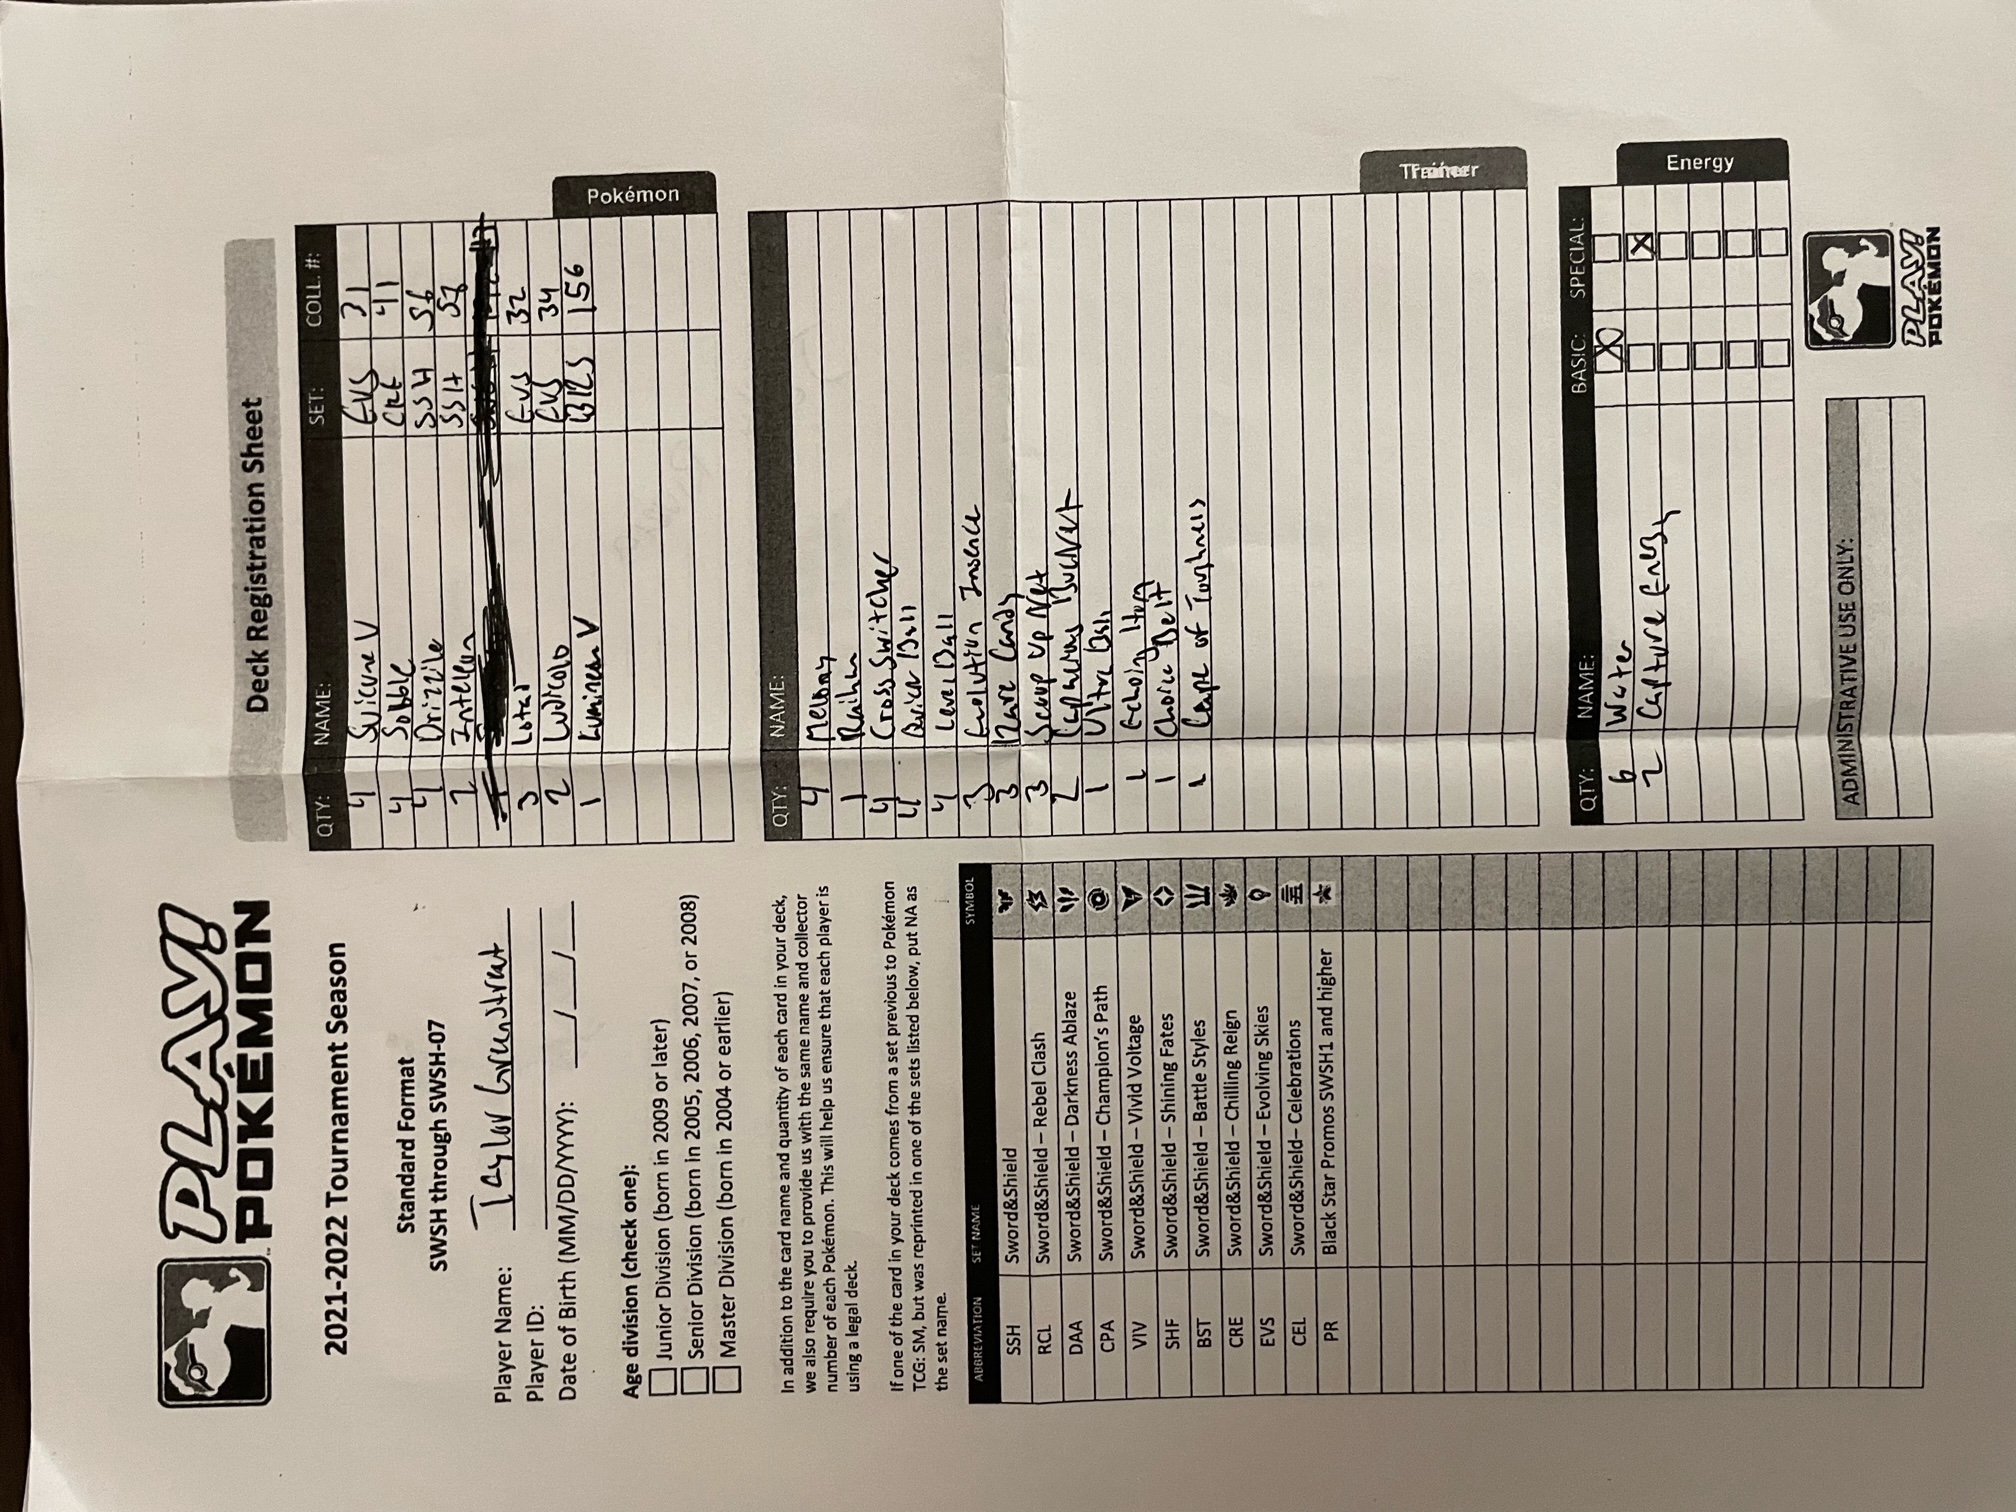 PLAY!
POKÉMON
2021-2022 Tournament Season
Standard Format
SWSH through SWSH-07
Player Name: Taylor Greenstreet
Player ID:
Date of Birth (MM/DD/YYYY): __/__/__
Age division (check one):
Junior Division (born in 2009 or later)
Senior Division (born in 2005, 2006, 2007, or 2008)
Master Division (born in 2004 or earlier)
In addition to the card name and quantity of each card in your deck,
we also require you to provide us with the same name and collector
number of each Pokémon. This will help us ensure that each player is
using a legal deck.
If one of the card in your deck comes from a set previous to Pokémon
TCG: SM, but was reprinted in one of the sets listed below, put NA as
the set name.
ABBREVIATION SET NAME SYMBOL
SSH Sword&Shield
RCL Sword&Shield – Rebel Clash
DAA Sword&Shield – Darkness Ablaze
CPA Sword&Shield – Champion's Path
VIV Sword&Shield – Vivid Voltage
SHF Sword&Shield – Shining Fates
BST Sword&Shield – Battle Styles
CRE Sword&Shield – Chilling Reign
EVS Sword&Shield – Evolving Skies
CEL Sword&Shield– Celebrations
PR Black Star Promos SWSH1 and higher
Deck Registration Sheet
QTY: NAME: SET: COLL. #:
4 Suicune V EVS 31
4 Sobble CRE 41
4 Drizzile SSH 56
2 Inteleon SSH 58
3 Lotad EVS 32
2 Ludicolo EVS 34
1 Lumineon V BRS 156
Pokémon
QTY: NAME:
4 Melony
1 Raihan
4 Cross Switcher
4 Quick Ball
4 Level Ball
3 Evolution Insence
3 Rare Candy
3 Scoop Up Net
2 Capacious Bucket
1 Ultra Ball
1 Echoing Horn
1 Choice Belt
1 Cape of Toughness
Trainer
QTY: NAME: BASIC: SPECIAL:
6 Water X
2 Capture Energy X
Energy
ADMINISTRATIVE USE ONLY:
PLAY!
POKÉMON